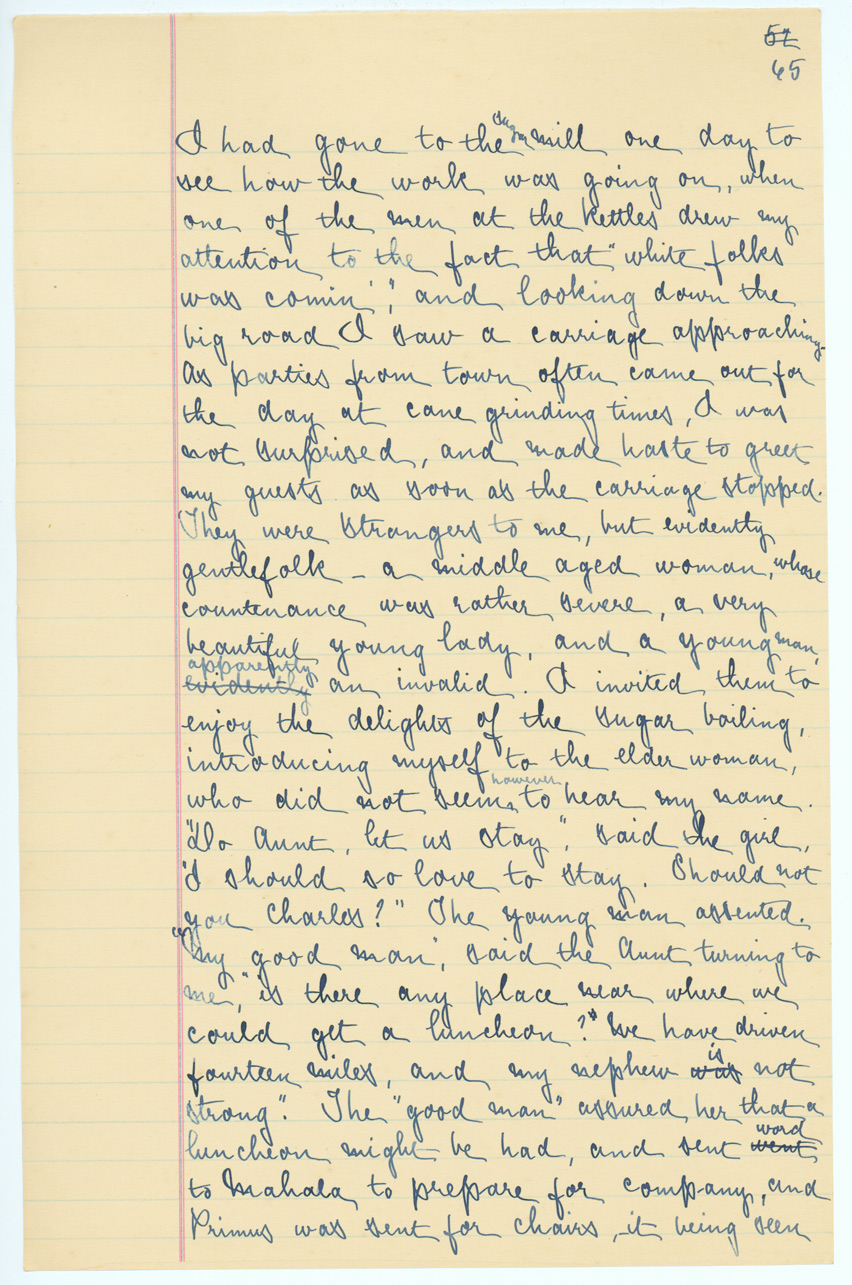 57
65
I had gone to the sugar mill one day to
see how the work was going on, when
one of the men at the kettles drew my
attention to the fact that "white folks
was comin'", and looking down the
big road I saw a carriage approaching.
As parties from town often came out for
the day at cane grinding times, I was
not surprised, and made haste to greet
my guests as soon as the carriage stopped.
They were strangers to me, but evidently
gentlefolk - a middle aged woman, whose
countenance was rather severe, a very
beautiful young lady, and a young man,
apparently
evidently an invalid. I invited them to
enjoy the delights of the sugar boiling,
introducing myself to the elder woman,
who did not seem, however to hear my name.
"Do Aunt, let us stay", said the girl,
"I should so love to stay. Should not
you Charles?" The young man assented.
"My good man", said the Aunt turning to
me, "is there any place near where we
could get a luncheon?" We have driven
fourteen miles, and my nephew was is not
strong". The "good man" assured her that a
luncheon might be had, and sent went word
to Mahala to prepare for company, and
Primus was sent for chairs, it being seen